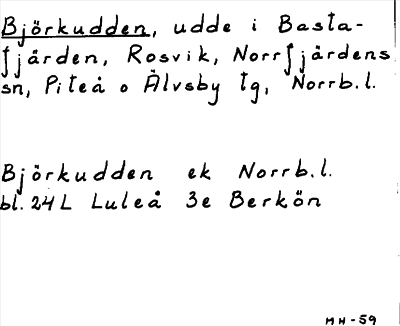 Björkudden, udde i Basta-
fjärden, Rosvik, Norrfjärdens
sn, Piteå o Älvsby tg, Norrb.l.
Björkudden ek Norrb.l.
bl. 24L Luleå 3e Berkön
MH-59